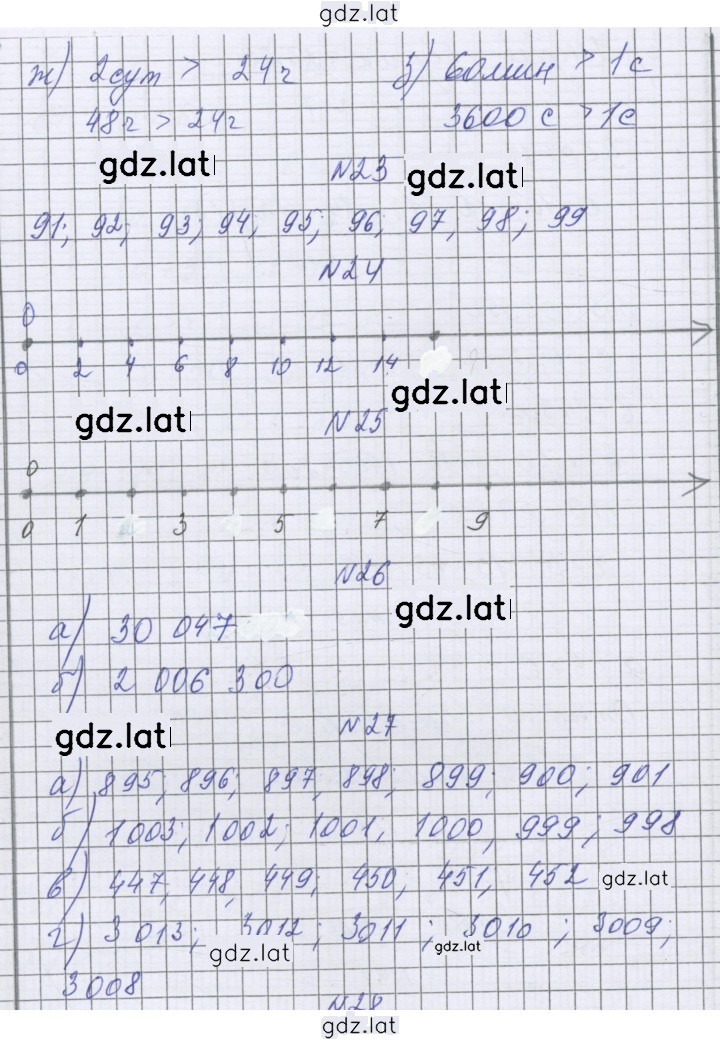 gdz.lat
ж) 2сут > 24ч з) 60мин > 1с
48ч > 24ч 3600 с > 1с
gdz.lat
№23 gdz.lat
91; 92; 93; 94; 95; 96; 97, 98; 99
№24
0
0 2 4 6 8 10 12 14
gdz.lat
gdz.lat
№25
0
0 1 3 5 7 9
№26
gdz.lat
а) 30 047
б) 2 006 300
gdz.lat
№27
а) 895; 896; 897, 898; 899; 900; 901
б) 1003; 1002; 1001, 1000, 999; 998
в) 447, 448, 449; 450; 451, 452 gdz.lat
г) 3 013; 3012; 3011; 3010; 3009;
gdz.lat gdz.lat
3008
№28
gdz.lat